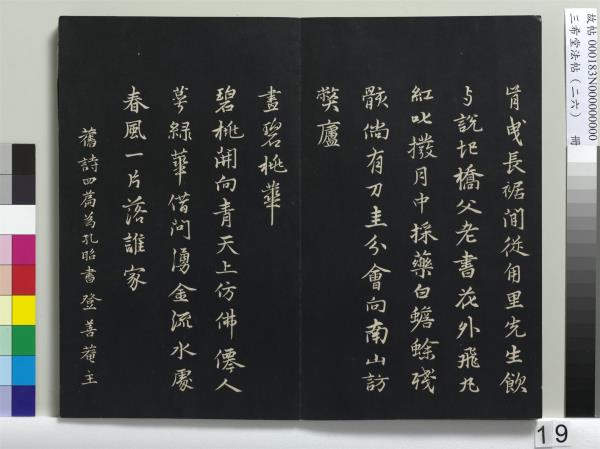 肯曳長裾間從甪里先生飲
與說圯橋父老書花外飛丸
紅叱撥月中採藥白蟾蜍殘
骸倘有刀圭分會向南山訪
弊廬
畫碧桃華
碧桃開向青天上仿佛僊人
萼綠華借問湧金流水處
春風一片落誰家
舊詩四篇為孔昭書登善菴主
故帖 000183N000000000
三希堂法帖(二六) 冊
19